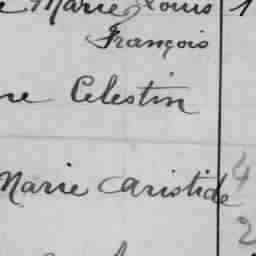 Marie Louis 1
François
re Celestin
Marie Caristide 4
2